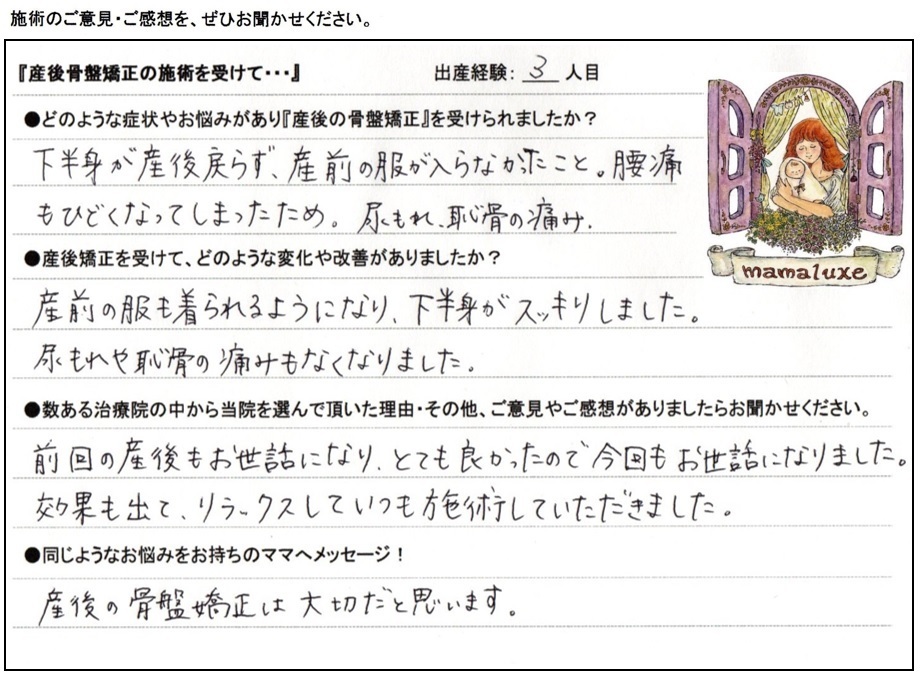 施術のご意見・ご感想を、ぜひお聞かせください。
『産後骨盤矯正の施術を受けて・・・』 出産経験: 3 人目
●どのような症状やお悩みがあり『産後の骨盤矯正』を受けられましたか？
下半身が産後戻らず、産前の服が入らなかったこと。腰痛
もひどくなってしまったため。尿もれ、恥骨の痛み.
mamaluxe
●産後矯正を受けて、どのような変化や改善がありましたか？
産前の服も着られるようになり、下半身がスッキリしました。
尿もれや恥骨の痛みもなくなりました。
●数ある治療院の中から当院を選んで頂いた理由・その他、ご意見やご感想がありましたらお聞かせください。
前回の産後もお世話になり、とても良かったので今回もお世話になりました。
効果も出て、リラックスしていつも施術していただきました。
●同じようなお悩みをお持ちのママへメッセージ！
産後の骨盤矯正は大切だと思います。